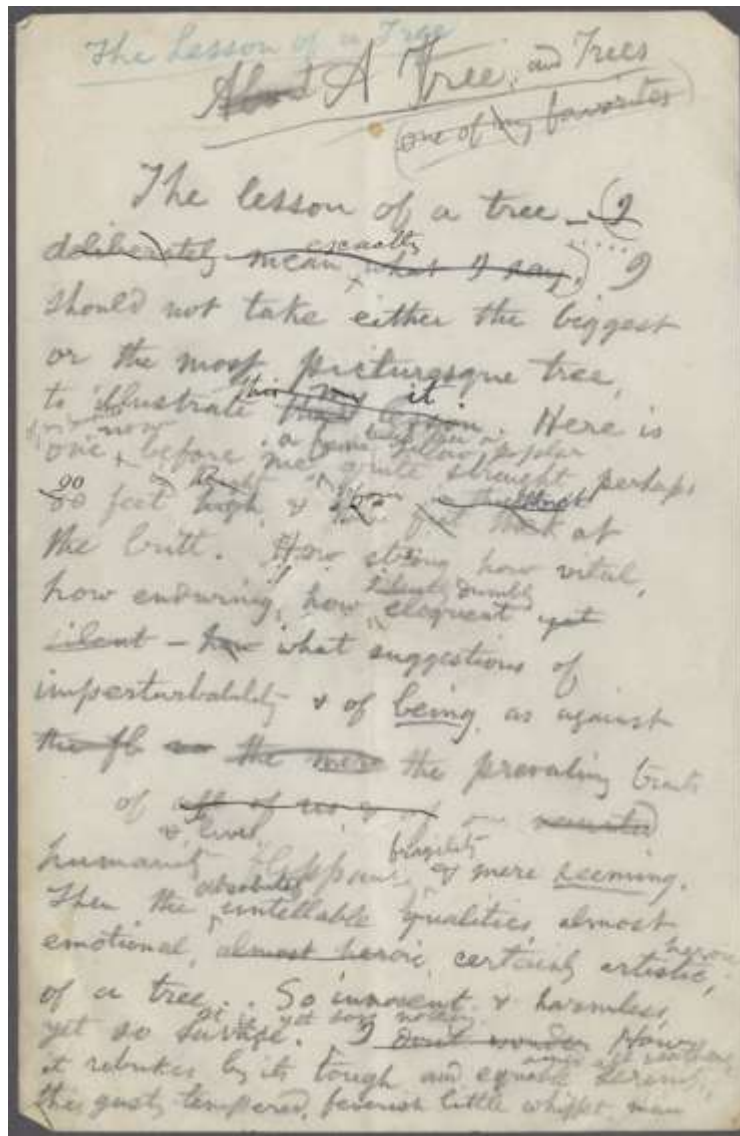 The Lesson of a Tree
About A Tree, and Trees
(one of my favorites)
The lesson of a tree — (I
deliberately mean exactly what I say,) I
should not take either the biggest
or the most picturesque tree,
to illustrate it. Here is
one now before me a yellow poplar
quite straight perhaps
90 feet high, & feet thick at
the butt. How strong how vital,
how enduring, how silently dumbly eloquent yet
silent — how what suggestions of
imperturbability & of being, as against
the the mere the prevailing traits
of all of us
humanity & fragility & mere seeming.
Then the absolutely untellable qualities, almost
emotional, almost heroic, certainly artistic, heroic
of a tree. So innocent & harmless,
yet so savage. It is yet says nothing. I don't wonder How
it rebukes by its tough and equable serenity,
this gusty tempered, feverish little whiffet, man